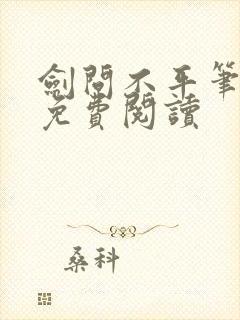 劍問不平筆
免費閱讀
桑科